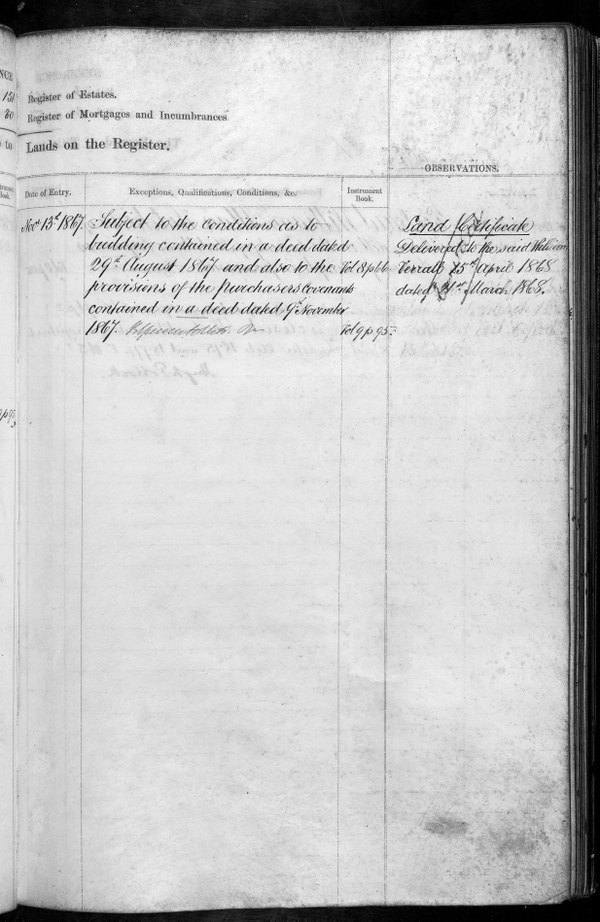 NCE
151
20
Register of Estates.
Register of Mortgages and Incumbrances
to
Lands on the Register.
OBSERVATIONS.
Date of Entry.
Exceptions, Qualifications, Conditions, &c.
Instrument
Book.
Novr 13th 1867.
Subject to the conditions as to
building contained in a deed dated
29th August 1867 and also to the
Vol 8 p 66
provisions of the purchasers covenants
contained in a deed dated 9th November
1867.
Vol 9 p 95
Land Certificate
Delivered to the said William
Verrall 25th April 1868
dated 21st March 1868.
p 95